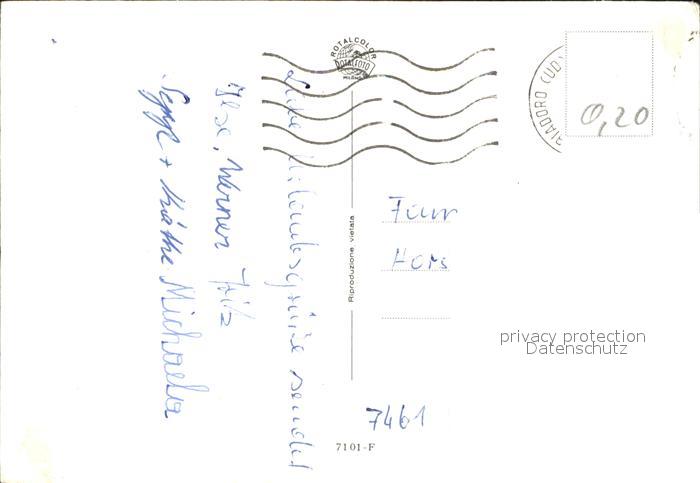 ROTALCOLOR
ROTALFOTO
MILANO
RIADORO (UD)
0,20
Liebe Urlaubsgrüße sendet
Ilse, Werner Fritz
Sepp + Käthe Michaela
Riproduzione vietata
Fam
Hors
7461
7101-F
privacy protection
Datenschutz